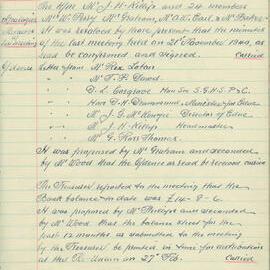 The Hon. Mr J. H. Kelly and 24 members
Apologies Mr W. Perry Mr Graham, Mr A.W. Earl & Mr
Minutes It was resolved by those present that the minutes
of the last meeting held on 21st November 1940, as
read be confirmed and signed. Carried
Letters from Mr Rex Latan
Mr T. P. David
D. L. Cosgrove Hon Sec S.G.H.S. P & C.
Hon D. H. Drummond, Minister for Educ.
Mr J. G. McKenzie Director of Educ
Mr J. H. Kelly Headmaster
Mr G. Ross Thomas.
It was proposed by Mr Graham and seconded
by Mr Wood that the as read be received carried
The Treasurer reported to the meeting that the
Bank balance to date was £14-8-6.
It was proposed by Mr Phillips and seconded
by Mr Wood that the balance sheet for the
past 12 months as submitted to the meeting
by the Treasurer be printed in time for distribution
at the Re Union on 27th Feb. Carried